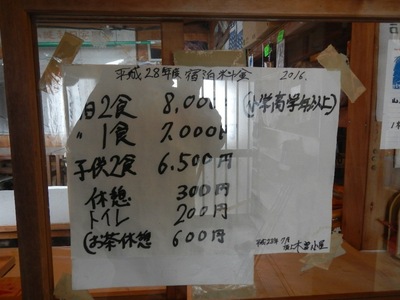 平成28年度 宿泊料金 2016.
泊2食 8,000円 (小学高学年以上)
〃 1食 7,000円
子供2食 6,500円
休憩 300円
トイレ 200円
(お茶休憩 600円
平成28年7月
木曽小屋